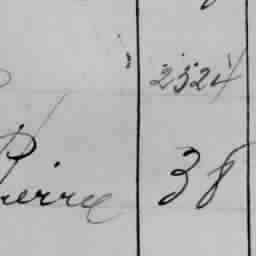 2324
Pierre 38